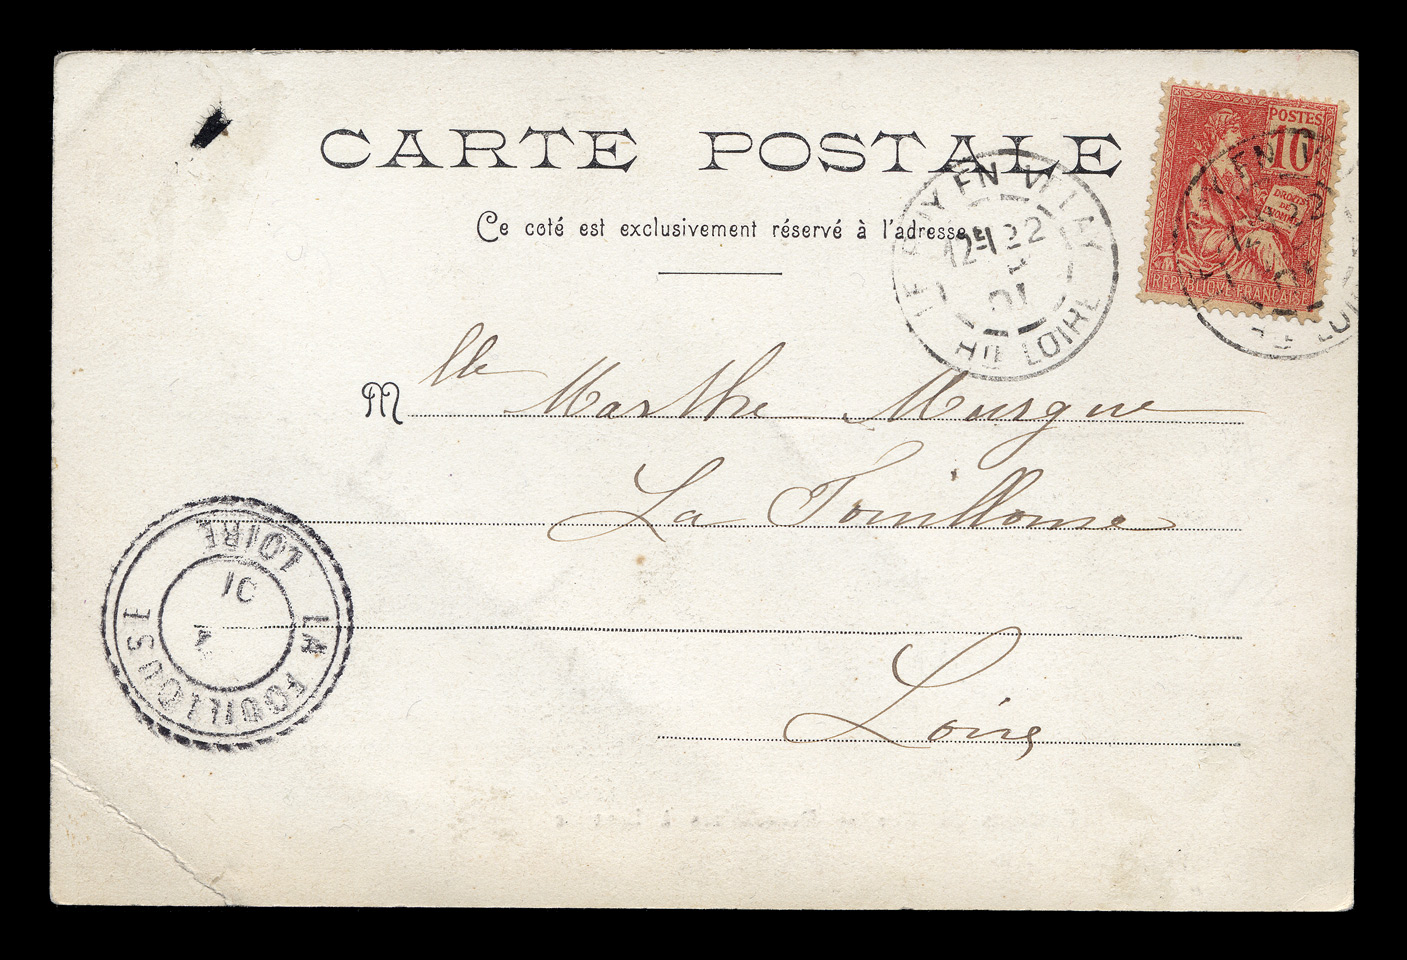 CARTE POSTALE
Ce coté est exclusivement réservé à l'adresse
POSTES
10
DROITS
DE
L'HOMME
REPUBLIQUE FRANÇAISE
LE PUY EN VELAY
12 E 22
01
Hte LOIRE
EN V
Hte LOIRE
Mlle Marthe Mursgue
La Fouillouse
Loire
LOIRE
01
4
LA FOUILLOUSE